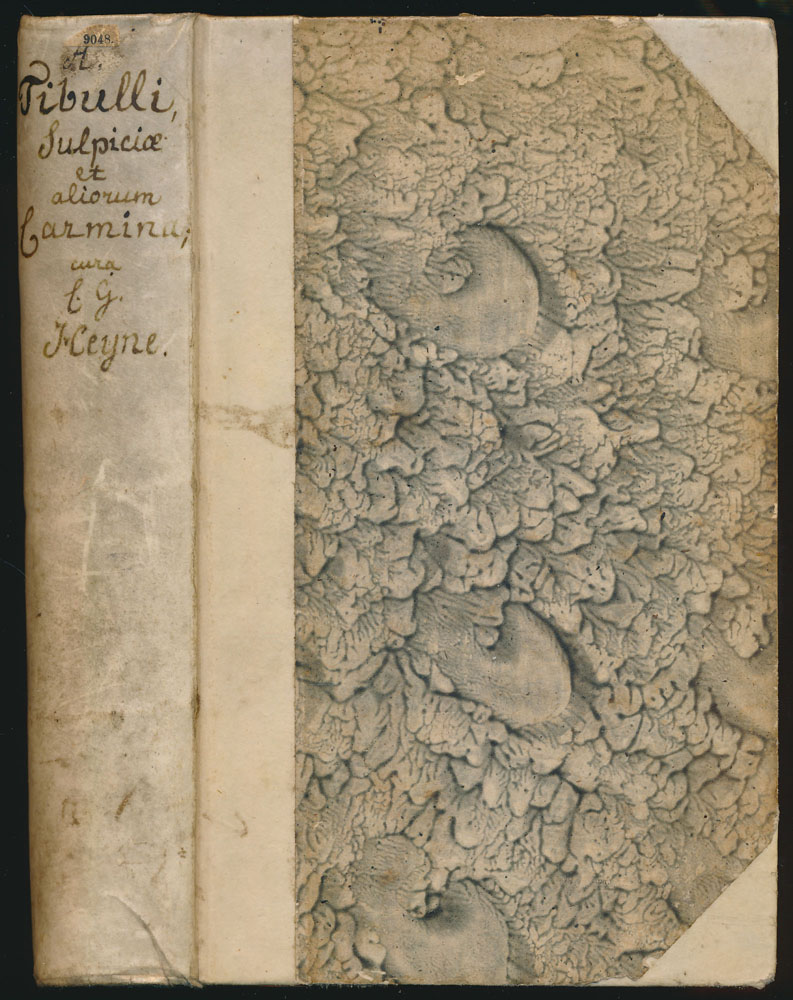 9048.
A.
Tibulli,
Sulpiciæ
et
aliorum
Carmina,
cura
C. G.
Heyne.